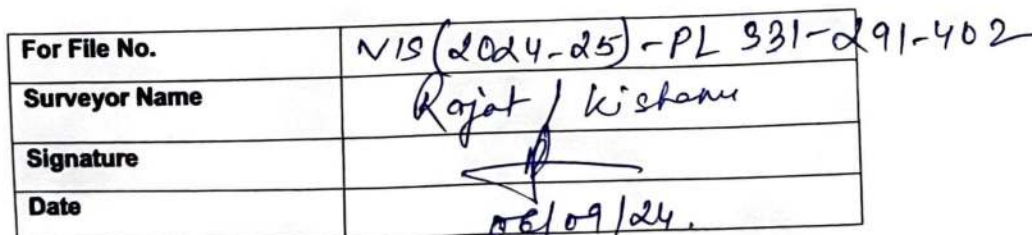 For File No. VIS(2024-25)-PL 331-291-402
Surveyor Name Rajat / Kishanu
Signature
Date 06/09/24.